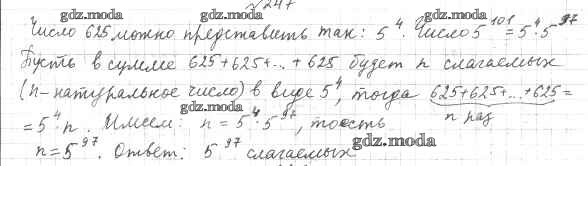 № 247
gdz.moda gdz.moda gdz.moda
Число 625 можно представить так: 5⁴. Число 5¹⁰¹ = 5⁴·5⁹⁷
Пусть в сумме 625+625+...+625 будет n слагаемых
(n-натуральное число) в виде 5⁴, тогда 625+625+...+625 =
gdz.moda
n раз
= 5⁴n. Имеем: n = 5⁴·5⁹⁷, то есть
n = 5⁹⁷. Ответ: 5⁹⁷ слагаемых
gdz.moda